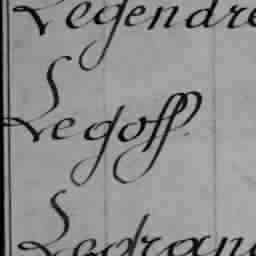 Legendre
Legoff.
Legrand